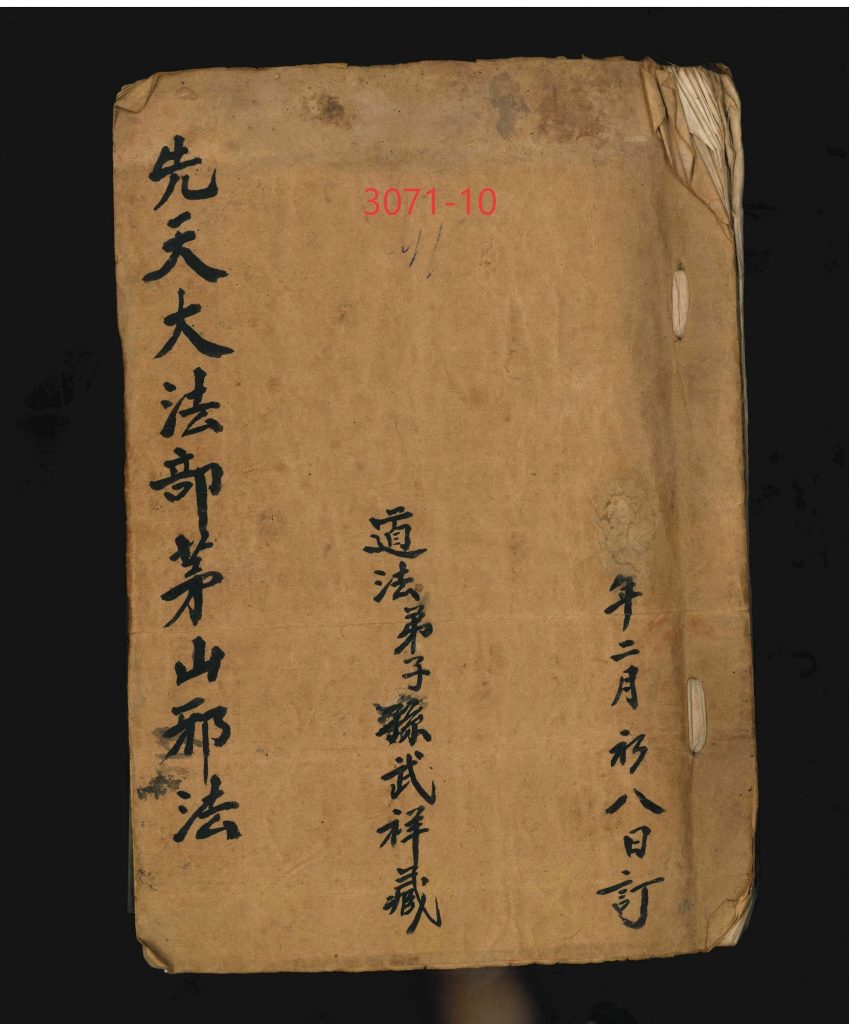 年二月初八日訂
道法弟子孫武祥藏
先天大法部茅山邪法
3071-10